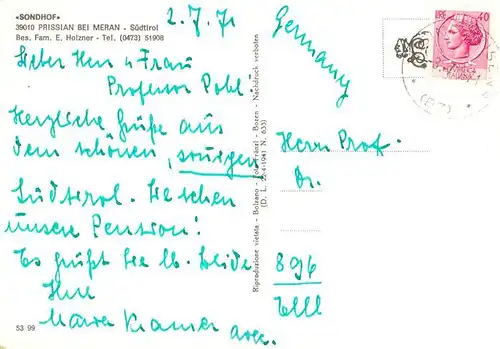 »SONDHOF«
39010 PRISSIAN BEI MERAN - Südtirol
Bes. Fam. E. Holzner - Tel. (0473) 51908
2.7.71
Lieber Herr u Frau
Professor Pohl!
Herzliche Grüße aus
dem schönen, sonnigen
Südtirol. Sie sehen
unsere Pension!
Es grüßt Sie lb. beide
Ihre
Kramer
53 99
Riproduzione vietata - Bolzano - Foto Fränzl - Bozen - Nachdruck verboten
Germany
LIRE 40
Herrn Prof.
Dr.
896